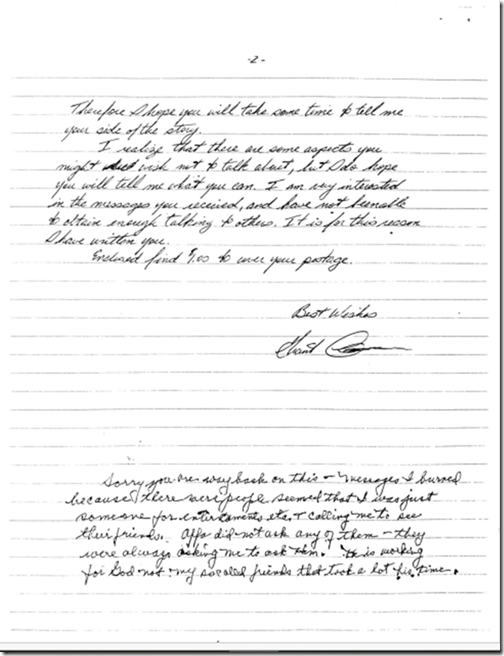 -2-
Therefore I hope you will take some time to tell me
your side of the story.
I realize that there are some aspects you
might wish not to talk about, but I do hope
you will tell me what you can. I am very interested
in the messages you received, and have not been able
to obtain enough talking to others. It is for this reason
I have written you.
Enclosed find to cover your postage.
Best Wishes
Sorry you are way back on this - Messages I burned
because there were people seemed that I was just
someone for entertaments etc. + calling me to see
their friends. Affa did not ask any of them - they
were always asking me to ask him. He is working
for God not my so called friends that took a lot his time.